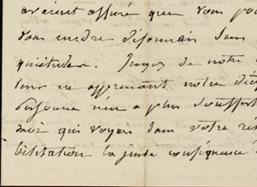 avaient assuré que vous po
vous rendre désormais sans
quiétude. Jugez de notre
en apprenant votre
Personne n'en a plus souffert
moi qui voyais dans votre ré
bilitation la juste conséquence